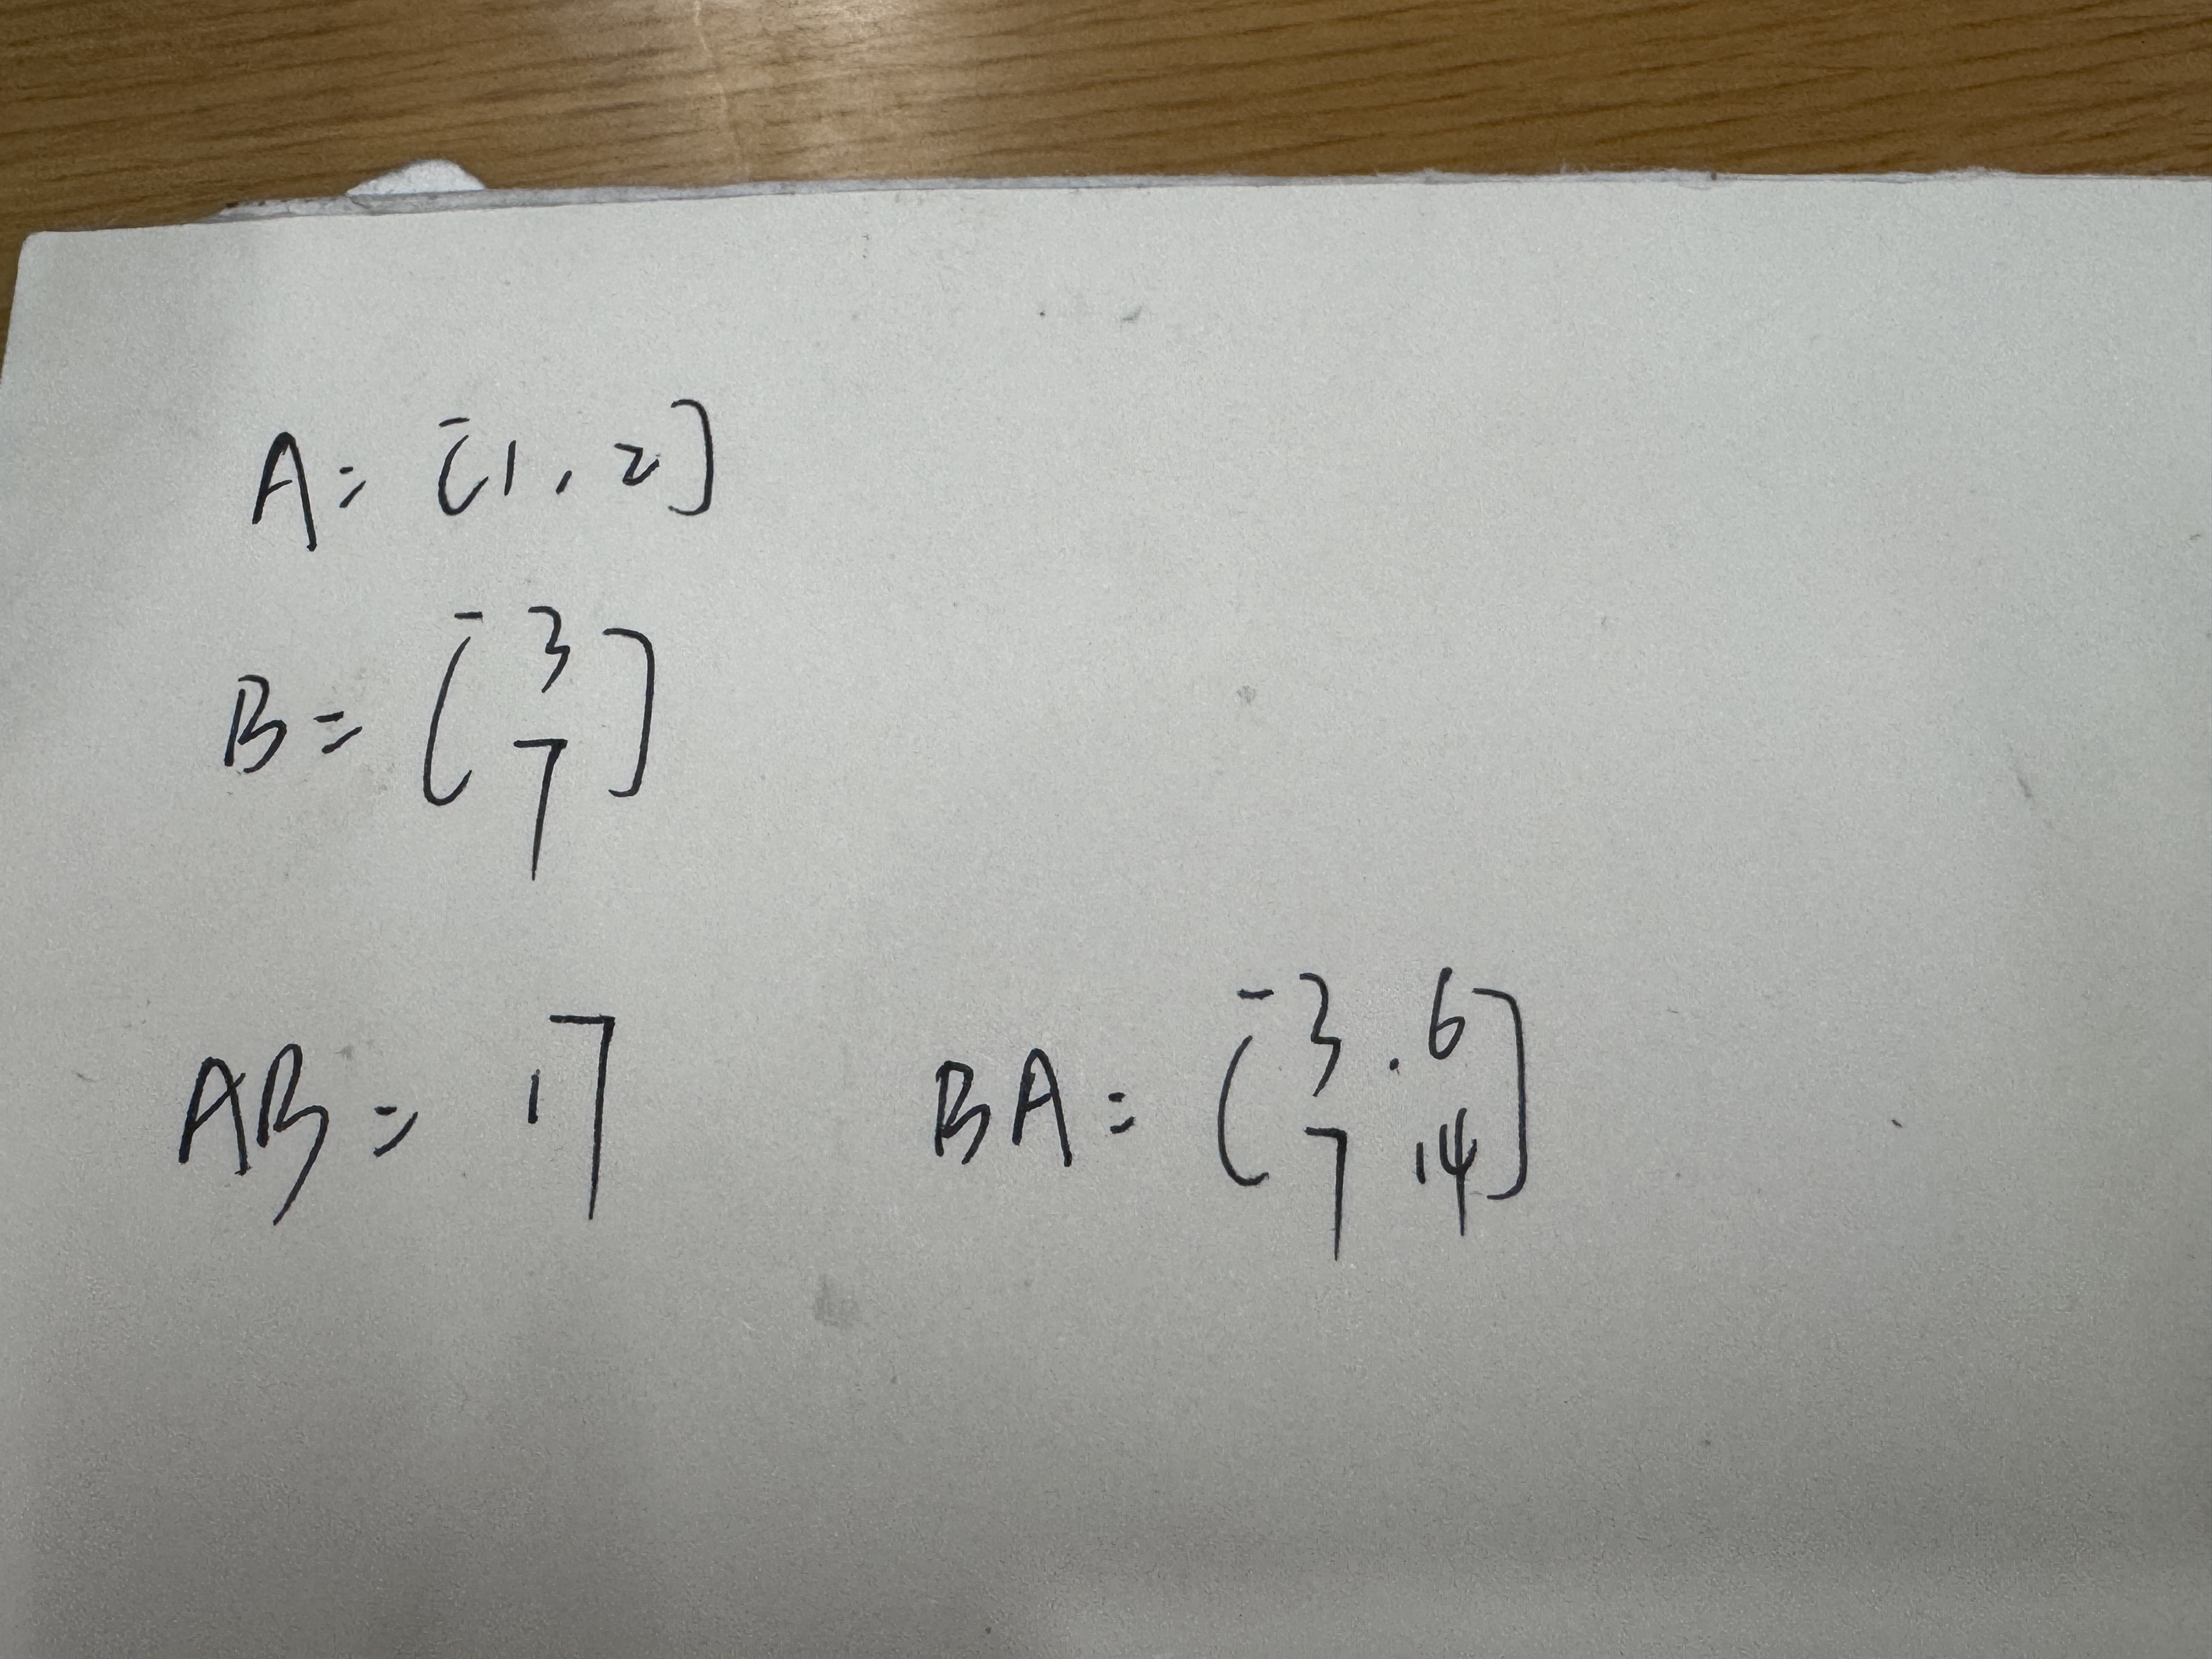 A = [1, 2]
B = [3
7]
AB = 17
BA = [3 . 6
7 14]